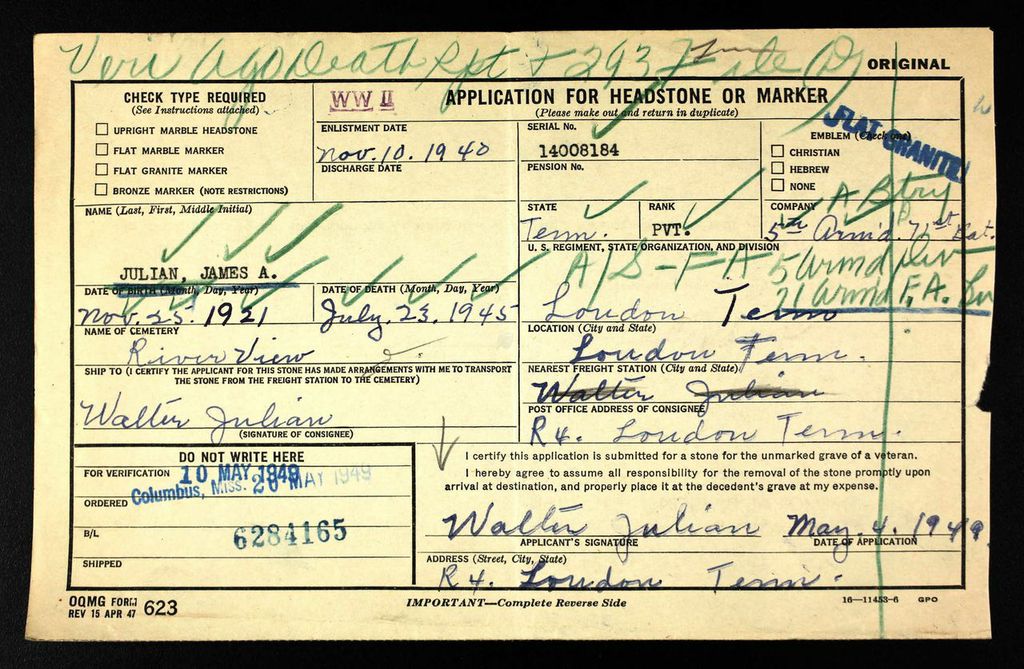 Veri Ago Death Rpt + 293 File
ORIGINAL
CHECK TYPE REQUIRED
(See Instructions attached)
UPRIGHT MARBLE HEADSTONE
FLAT MARBLE MARKER
FLAT GRANITE MARKER
BRONZE MARKER (NOTE RESTRICTIONS)
WW II
APPLICATION FOR HEADSTONE OR MARKER
(Please make out and return in duplicate)
ENLISTMENT DATE
Nov. 10. 1940
DISCHARGE DATE
SERIAL No.
14008184
PENSION No.
EMBLEM (Check one)
CHRISTIAN
HEBREW
NONE
FLAT GRANITE
NAME (Last, First, Middle Initial)
JULIAN, JAMES A.
STATE
Tenn.
RANK
PVT.
COMPANY
A Btry
5th Arm'd. 71st Bat.
U. S. REGIMENT, STATE ORGANIZATION, AND DIVISION
A/S-FA 5 Armd Div
71 Armd F.A. Bn
Loudon Tenn
DATE OF BIRTH (Month, Day, Year)
Nov. 25. 1921
DATE OF DEATH (Month, Day, Year)
July 23. 1945
NAME OF CEMETERY
River View
LOCATION (City and State)
Loudon Tenn.
SHIP TO (I CERTIFY THE APPLICANT FOR THIS STONE HAS MADE ARRANGEMENTS WITH ME TO TRANSPORT
THE STONE FROM THE FREIGHT STATION TO THE CEMETERY)
Walter Julian
(SIGNATURE OF CONSIGNEE)
NEAREST FREIGHT STATION (City and State)
Walter Julian
POST OFFICE ADDRESS OF CONSIGNEE
R4. Loudon Tenn.
DO NOT WRITE HERE
FOR VERIFICATION 10 MAY 1949
ORDERED Columbus, Miss. 26 MAY 1949
B/L 6284165
SHIPPED
I certify this application is submitted for a stone for the unmarked grave of a veteran.
I hereby agree to assume all responsibility for the removal of the stone promptly upon
arrival at destination, and properly place it at the decedent's grave at my expense.
Walter Julian May. 4. 1949.
APPLICANT'S SIGNATURE DATE OF APPLICATION
ADDRESS (Street, City, State)
R4. Loudon Tenn.
OQMG FORM
REV 15 APR 47 623
IMPORTANT—Complete Reverse Side
16—11453-6 GPO